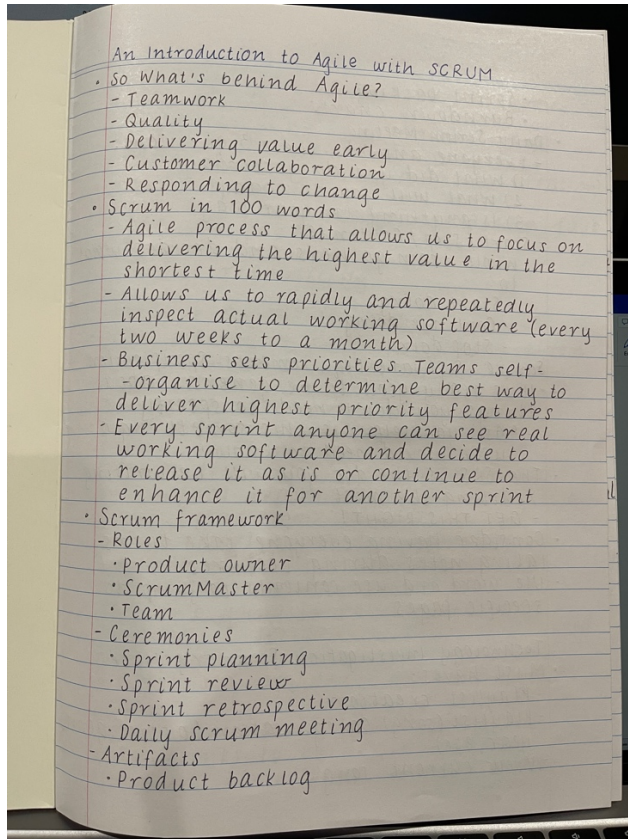 An Introduction to Agile with SCRUM
· So What's behind Agile?
- Teamwork
- Quality
- Delivering value early
- Customer collaboration
- Responding to change
· Scrum in 100 words
- Agile process that allows us to focus on
delivering the highest value in the
shortest time
- Allows us to rapidly and repeatedly
inspect actual working software (every
two weeks to a month)
- Business sets priorities. Teams self-
-organise to determine best way to
deliver highest priority features
- Every sprint anyone can see real
working software and decide to
release it as is or continue to
enhance it for another sprint
· Scrum framework
- Roles
· Product owner
· ScrumMaster
· Team
- Ceremonies
· Sprint planning
· Sprint review
· Sprint retrospective
· Daily scrum meeting
- Artifacts
· Product backlog